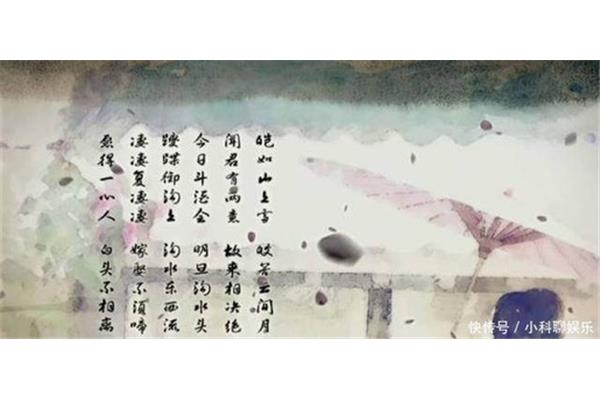 皑如山上雪 皎若云间月
闻君有两意 故来相决绝
今日斗酒会 明旦沟水头
躞蹀御沟上 沟水东西流
凄凄复凄凄 嫁娶不须啼
愿得一心人 白头不相离
快传号 / 小科聊娱乐